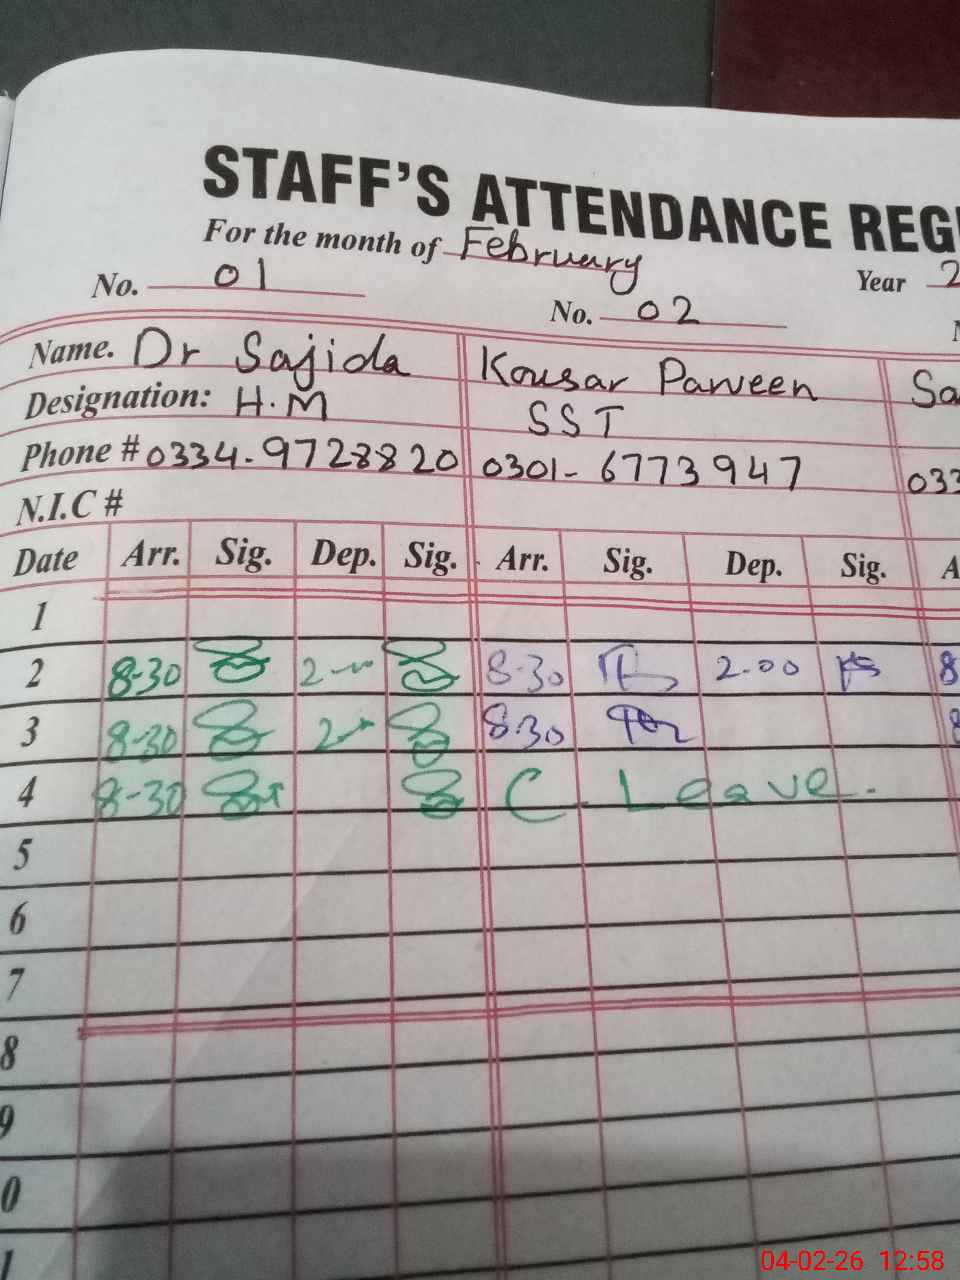 STAFF'S ATTENDANCE REGI
For the month of February
No. 01 No. 02 Year 2
Name. Dr Sajida Kousar Parveen Sa
Designation: H.M SST
Phone # 0334-9728820 0301-6773947 033
N.I.C #
Date Arr. Sig. Dep. Sig. Arr. Sig. Dep. Sig. A
1
2 8-30 2-00 8-30 2.00 8
3 8-30 2 8.30 8
4 8-30 C Leave.
5
6
7
8
9
0
1
04-02-26 12:58